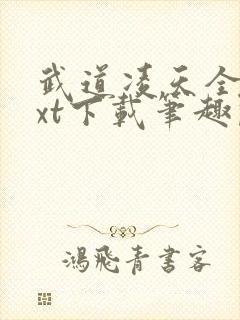 武道凌天全
xt下载笔趣
鴻飛青書客